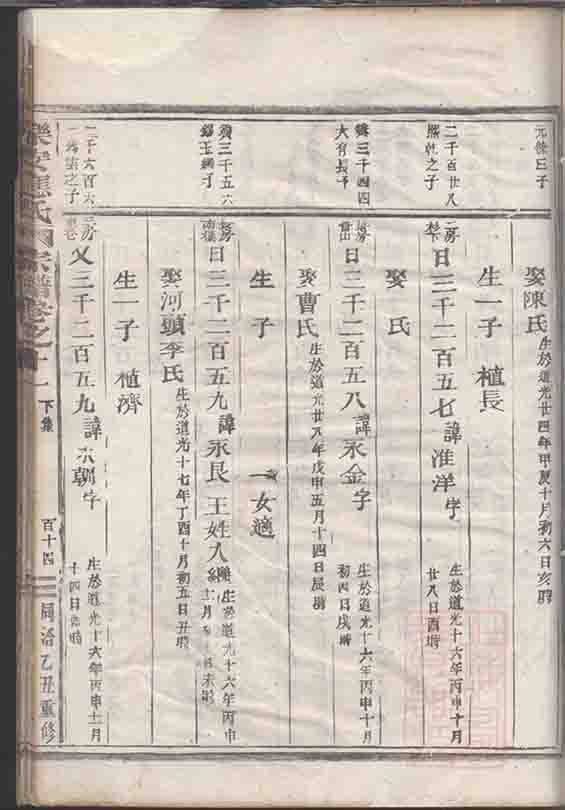 元儉三子
娶陳氏 生於道光廿四年甲夏十月初六日亥時
生一子 植長
二千百廿八
熙乾之子
二房
曰三千二百五七 諱淮洋 字 生於道光十六年丙申十月
廿八日酉時
娶氏
大有長子
曰三千二百五八 諱永金 字 生於道光十六年丙申十月
初四日戌時
娶曹氏 生於道光廿八年戊申五月十四日辰時
生子 一女適
三千五六
曰三千二百五九 諱永艮 生於道光十六年丙申
未時
娶河頭李氏 生於道光十七年丁酉十月初五日丑時
生一子 植濟
二千六百六
之子
二房
父三千二百五九 諱永朝 字 生於道光十六年丙申十二月
十四日 時
氏宗譜卷之十一 下集 百十四 同治乙丑重修